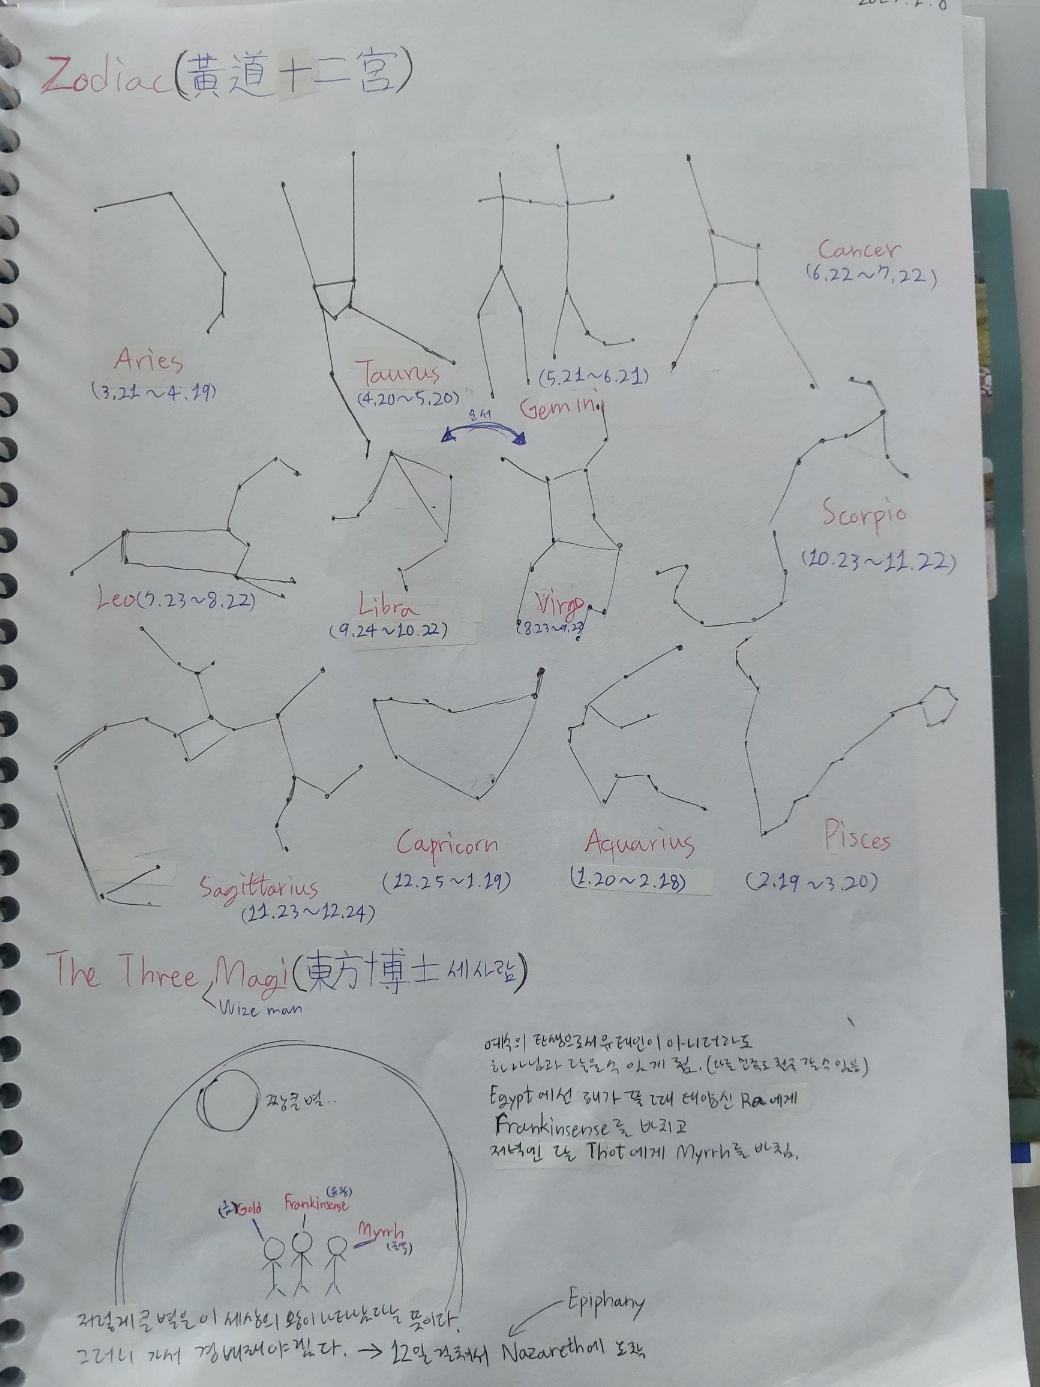 Zodiac(黃道十二宮)
Cancer
(6.22~7.22)
Aries
(3.21~4.19)
Taurus
(4.20~5.20)
(5.21~6.21)
Gemini
순서
Scorpio
(10.23~11.22)
Leo(7.23~8.22)
Libra
(9.24~10.22)
Virgo
(8.23~9.23)
Capricorn
(12.25~1.19)
Aquarius
(1.20~2.18)
Pisces
(2.19~3.20)
Sagittarius
(11.23~12.24)
The Three Magi(東方博士 세사람)
Wize man
예수의 탄생으로서 유태인이 아니더라도
하나님과 닿을 수 있게 됨. (다른 민족도 천국 갈 수 있음)
Egypt에선 해가 뜰 때 태양신 Ra에게
Frankinsense를 바치고
저녁엔 달 Thot에게 Myrrh를 바침.
짱큰별..
(금)Gold
Frankinsense
(유향)
Myrrh
(몰약)
저렇게 큰 별은 이 세상의 왕이 나타났다는 뜻이다.
그러니 가서 경배해야겠다. → 12일 걸려서 Nazareth에 도착
Epiphany